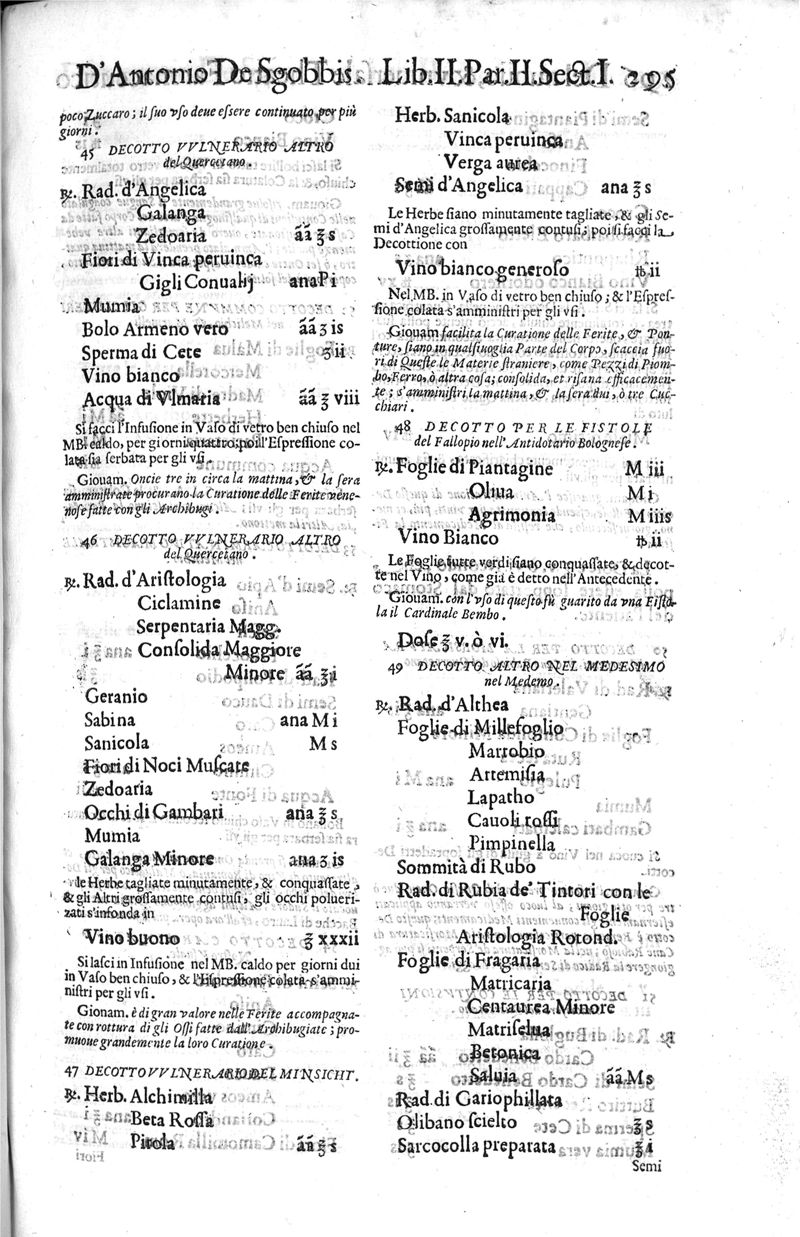 D'Antonio De Sgobbis. Lib.II.Par.II.Sect.I. 295
poco Zuccaro; il suo vso deue essere continuato per più
giorni.
45 DECOTTO VVLNERARIO ALTRO
del Quercetano.
℞. Rad. d'Angelica
Galanga
Zedoaria ãã ʒ s
Fiori di Vinca peruinca
Gigli Conualij ana P i
Mumia
Bolo Armeno vero ãã ʒ is
Sperma di Cete ʒ ii
Vino bianco
Acqua di Vlmaria ãã ℥ viii
Si facci l'Infusione in Vaso di vetro ben chiuso nel
MB. caldo, per giorni quattro; poi l'Espressione co-
lata sia serbata per gli vsi.
Giouam. Oncie tre in circa la mattina, & la sera
amministrate procurano la Curatione delle Ferite vene-
nose fatte con gli Archibugi.
46 DECOTTO VVLNERARIO ALTRO
del Quercetano.
℞. Rad. d'Aristologia
Ciclamine
Serpentaria Magg.
Consolida Maggiore
Minore ãã ℥ i
Geranio
Sabina ana M i
Sanicola M s
Fiori di Noci Muscate
Zedoaria
Occhi di Gambari ana ℥ s
Mumia
Galanga Minore ana ʒ is
le Herbe tagliate minutamente, & conquassate,
& gli Altri grossamente contusi, gli occhi polueri-
zati s'infonda in
Vino buono ℥ xxxii
Si lasci in Infusione nel MB. caldo per giorni dui
in Vaso ben chiuso, & l'Espressione colata s'ammi-
nistri per gli vsi.
Gionam. è di gran valore nelle Ferite accompagna-
te con rottura di gli Ossi fatte dall'Archibugiate; pro-
muoue grandemente la loro Curatione.
47 DECOTTO VVLNERARIO DEL MINSICHT.
℞. Herb. Alchimilla
Beta Rossa
Pirola ãã ℥ s
Herb. Sanicola
Vinca peruinca
Verga aurea
Semi d'Angelica ana ℥ s
Le Herbe siano minutamente tagliate, & gli Se-
mi d'Angelica grossamente contusi; poi si facci la
Decottione con
Vino bianco generoso ℔ ii
Nel MB. in Vaso di vetro ben chiuso; & l'Espres-
sione colata s'amministri per gli vsi.
Giouam facilita la Curatione delle Ferite, & Pon-
ture, siano in qualsiuoglia Parte del Corpo, scaccia fuo-
ri di Queste le Materie straniere, come Pezzi di Piom-
bo, Ferro, ò altra cosa; consolida, et risana efficacemen-
te; s'amministri la mattina, & la sera dui, ò tre Cuc-
chiari.
48 DECOTTO PER LE FISTOLE
del Fallopio nell'Antidotario Bolognese.
℞. Foglie di Piantagine M iii
Oliua M i
Agrimonia M iiis
Vino Bianco ℔ ii
Le Foglie tutte verdi siano conquassate, & decot-
te nel Vino, come già è detto nell'Antecedente.
Giouam. con l'vso di questo fù guarito da vna Fisto-
la il Cardinale Bembo.
Dose ℥ v. ò vi.
49 DECOTTO ALTRO NEL MEDESIMO
nel Medemo.
℞. Rad. d'Althea
Foglie di Millefoglio
Marrobio
Artemisia
Lapatho
Cauoli rossi
Pimpinella
Sommità di Rubo
Rad. di Rubia de' Tintori con le
Foglie
Aristologia Rotond.
Foglie di Fragaria
Matricaria
Centaurea Minore
Matriselua
Betonica
Saluia ãã M s
Rad. di Gariophillata
Olibano scielto ℥ s
Sarcocolla preparata ℥ i
Semi